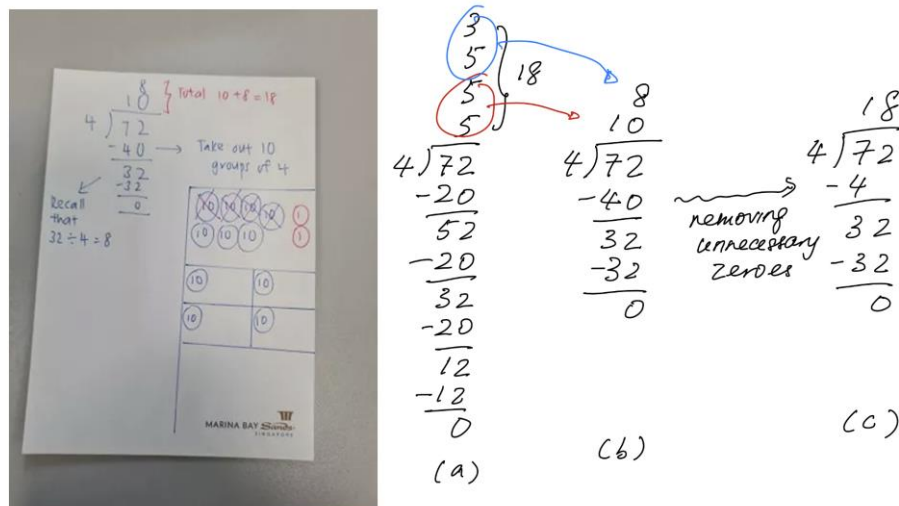 8
10 } Total 10 + 8 = 18
4 ) 72
- 40 → Take out 10
groups of 4
32
-32
0
Recall
that
32 ÷ 4 = 8
10 10 10 10 1
10 10 10 1
10 10
10 10
MARINA BAY Sands
SINGAPORE
3
5
5
5
18
4 ) 72
-20
52
-20
32
-20
12
-12
0
(a)
8
10
4 ) 72
-40
32
-32
0
(b)
removing
unnecessary
zeroes
18
4 ) 72
-4
32
-32
0
(c)